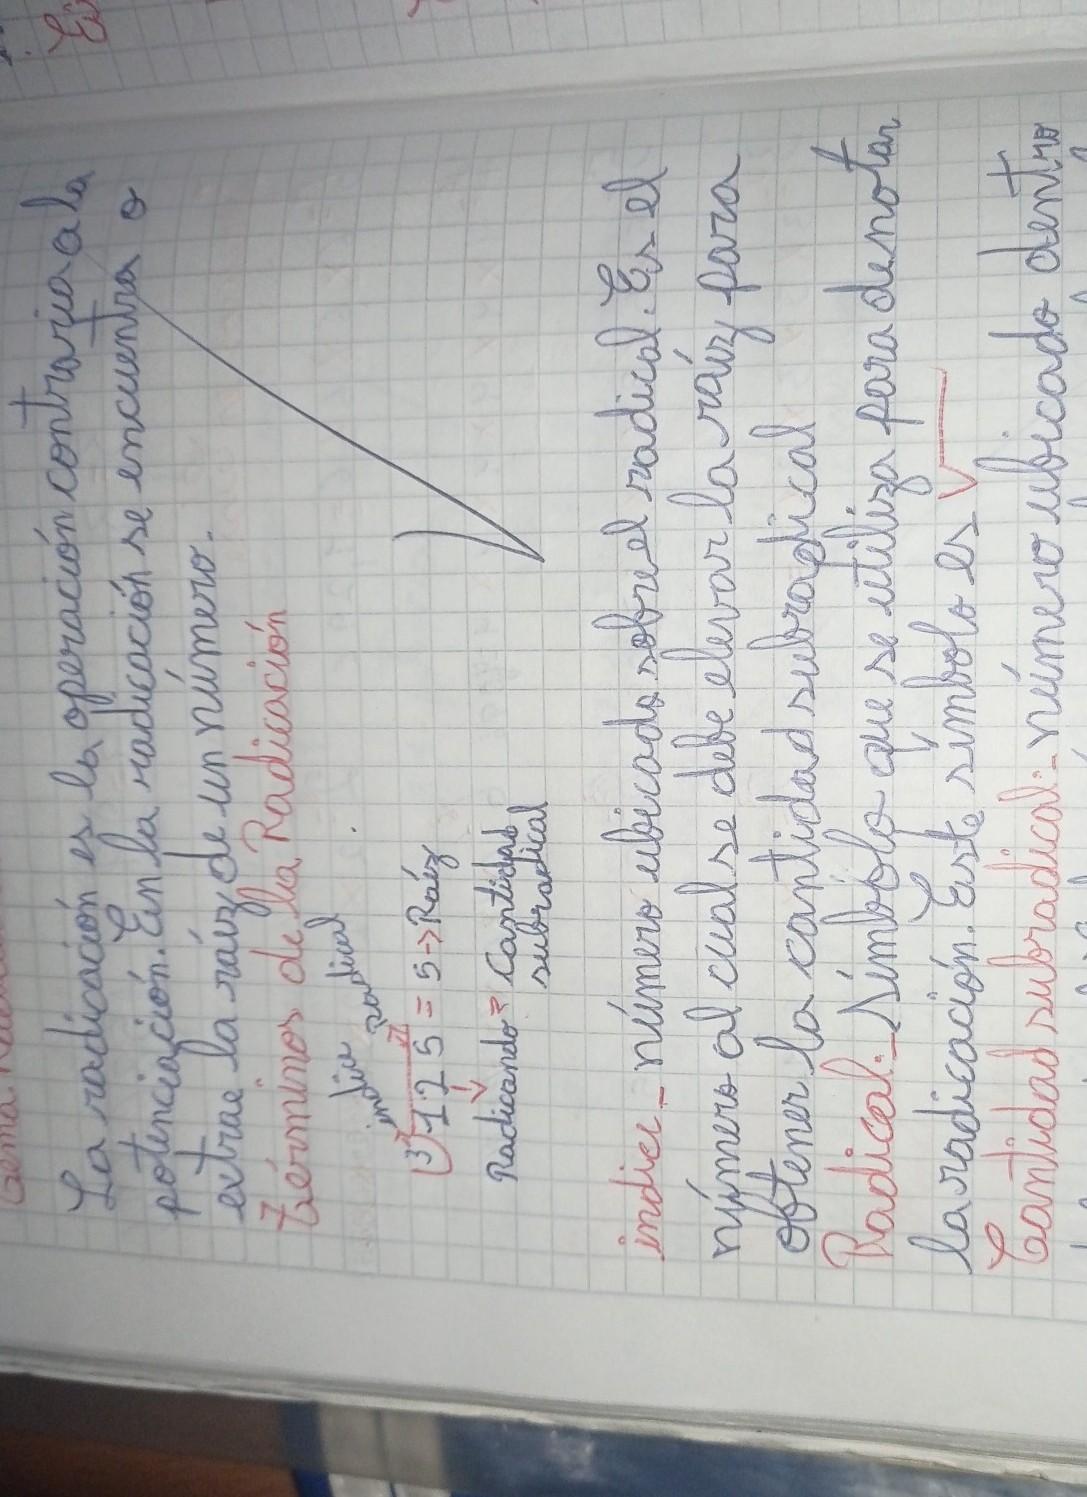 La radicación es la operación contraria a la
potenciación. En la radicación se encuentra o
extrae la raíz de un número.
Términos de la Radicación
indice radical
∛125 = 5 → Raíz
Radicando = Cantidad
subradical
indice - número ubicado sobre el radical. Es el
número al cual se debe elevar la raíz para
obtener la cantidad subradical
Radical.- Símbolo que se utiliza para denotar
la radicación. Este símbolo es √
Cantidad subradical:- número ubicado dentro